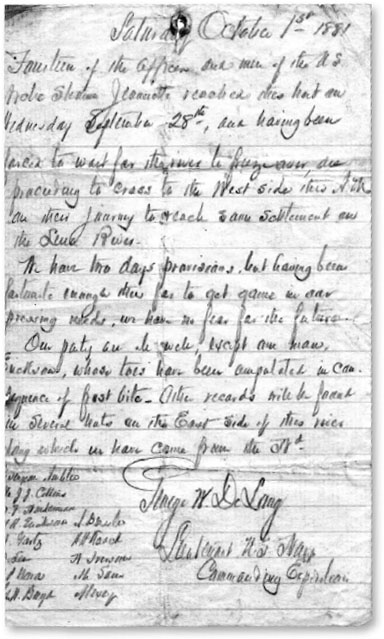 Saturday October 1st 1881
Fourteen of the officers and men of the U.S.
Steamer Jeannette reached this hut on
Wednesday September 28th, and having been
forced to wait for the river to freeze over, are
proceeding to cross to the West side this A.M.
on their journey to reach some settlement on
the Lena River.
We have two days provisions, but having been
fortunate enough thus far to get game in our
pressing needs, we have no fear for the future.
Our party are all well, except one man,
Ericksen, whose toes have been amputated in con-
sequence of frost bite. Other records will be found
in several huts on the East side of this river
along which we have come from the Nd
J.J. Collins
George W. De Long
Lieutenant U.S. Navy
Commanding Expedition